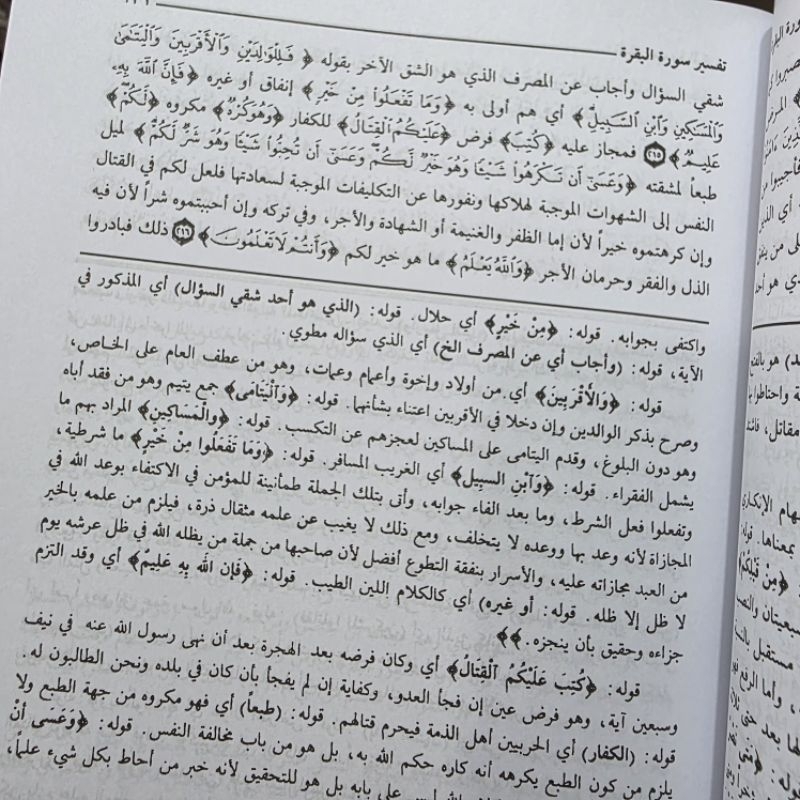 تفسير سورة البقرة
شقي السؤال وأجاب عن المصرف الذي هو الشق الآخر بقوله ﴿فَلِلْوَٰلِدَيْنِ وَٱلْأَقْرَبِينَ وَٱلْيَتَٰمَىٰ
وَٱلْمَسَٰكِينِ وَٱبْنِ ٱلسَّبِيلِۗ﴾ أي هم أولى به ﴿وَمَا تَفْعَلُوا۟ مِنْ خَيْرٍ﴾ إنفاق أو غيره ﴿فَإِنَّ ٱللَّهَ بِهِۦ
عَلِيمٌ﴾ ٢١٥ فمجاز عليه ﴿كُتِبَ﴾ فرض ﴿عَلَيْكُمُ ٱلْقِتَالُ﴾ للكفار ﴿وَهُوَ كُرْهٌ﴾ مكروه ﴿لَّكُمْۖ﴾
طبعاً لمشقته ﴿وَعَسَىٰٓ أَن تَكْرَهُوا۟ شَيْـًٔا وَهُوَ خَيْرٌ لَّكُمْۖ وَعَسَىٰٓ أَن تُحِبُّوا۟ شَيْـًٔا وَهُوَ شَرٌّ لَّكُمْۗ﴾ لميل
النفس إلى الشهوات الموجبة لهلاكها ونفورها عن التكليفات الموجبة لسعادتها فلعل لكم في القتال
وإن كرهتموه خيراً لأن إما الظفر والغنيمة أو الشهادة والأجر، وفي تركه وإن أحببتموه شراً لأن فيه
الذل والفقر وحرمان الأجر ﴿وَٱللَّهُ يَعْلَمُ﴾ ما هو خير لكم ﴿وَأَنتُمْ لَا تَعْلَمُونَ﴾ ٢١٦ ذلك فبادروا
واكتفى بجوابه. قوله: ﴿مِنْ خَيْرٍ﴾ أي حلال. قوله: (الذي هو أحد شقي السؤال) أي المذكور في
الآية، قوله: (وأجاب أي عن المصرف الخ) أي الذي سؤاله مطوي.
قوله: ﴿وَالأَقْرَبِينَ﴾ أي من أولاد وإخوة وأعمام وعمات، وهو من عطف العام على الخاص،
وصرح بذكر الوالدين وإن دخلا في الأقربين اعتناء بشأنهما. قوله: ﴿وَالْيَتَامَى﴾ جمع يتيم وهو من فقد أباه
وهو دون البلوغ، وقدم اليتامى على المساكين لعجزهم عن التكسب. قوله: ﴿والْمَسَاكِينِ﴾ المراد بهم ما
يشمل الفقراء. قوله: ﴿وَابْنِ السبِيلِ﴾ أي الغريب المسافر. قوله: ﴿وَمَا تَفْعَلُوا مِنْ خَيْرٍ﴾ ما شرطية،
وتفعلوا فعل الشرط، وما بعد الفاء جوابه، وأتى بتلك الجملة طمأنينة للمؤمن في الاكتفاء بوعد الله في
المجازاة لأنه وعد بها ووعده لا يتخلف، ومع ذلك لا يغيب عن علمه مثقال ذرة، فيلزم من علمه بالخير
من العبد مجازاته عليه، والأسرار بنفقة التطوع أفضل لأن صاحبها من جملة من يظله الله في ظل عرشه يوم
لا ظل إلا ظله. قوله: (أو غيره) أي كالكلام اللين الطيب. قوله: ﴿فَإِنَّ اللَّه بِهِ عَلِيمٌ﴾ أي وقد التزم
جزاءه وحقيق بأن ينجزه.
قوله: ﴿كُتِبَ عَلَيْكُمُ ٱلْقِتَالُ﴾ أي وكان فرضه بعد الهجرة بعد أن نهى رسول الله عنه في نيف
وسبعين آية، وهو فرض عين إن فجأ العدو، وكفاية إن لم يفجأ بأن كان في بلده ونحن الطالبون له.
قوله: (الكفار) أي الحربيين أهل الذمة فيحرم قتالهم. قوله: (طبعاً) أي فهو مكروه من جهة الطبع ولا
يلزم من كون الطبع يكرهه أنه كاره حكم الله به، بل هو من باب مخالفة النفس. قوله: ﴿وَعَسَى أَنْ
على بابه بل هو للتحقيق لأنه خبر من أحاط بكل شيء علماً،